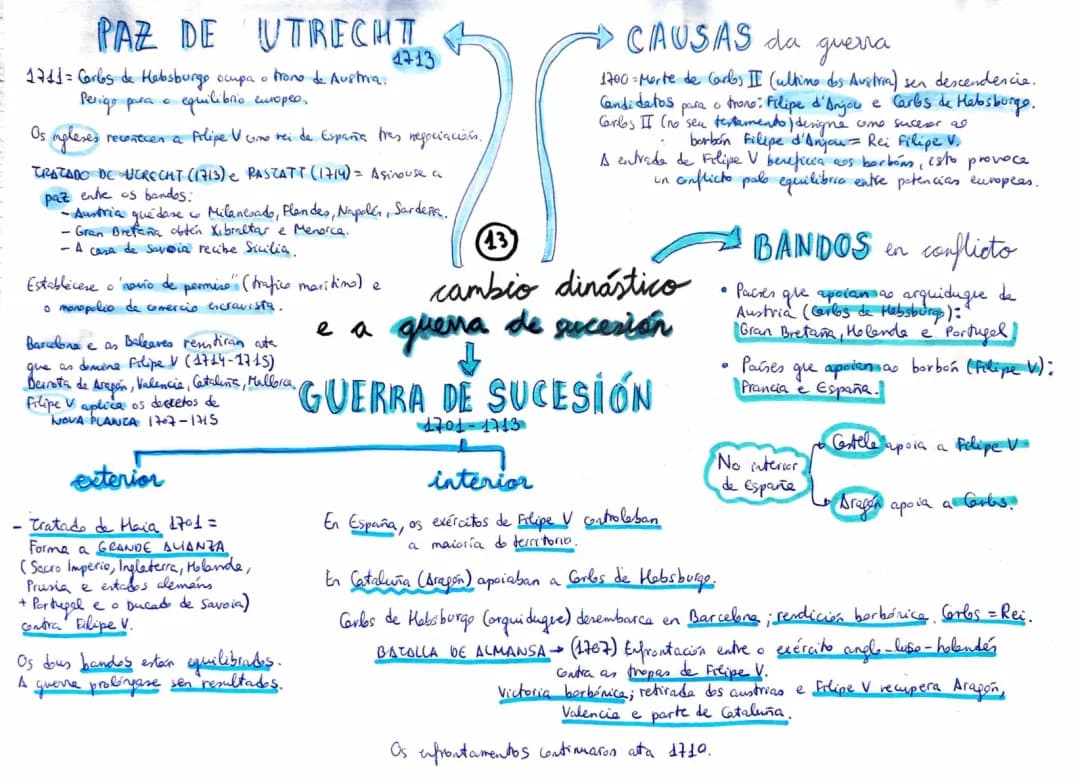 13
cambio dinástico
e a guerra de sucesión
CAUSAS da guerra
1700 = Morte de Carlos II (ultimo dos Austria) sen descendencia.
Candidatos para o trono: Filipe d'Anjou e Carlos de Habsburgo.
Carlos II (no seu testamento) designa como sucesor ao
borbón Filipe d'Anjou = Rei Filipe V.
A entrada de Felipe V beneficia aos borbóns, isto provoca
un conflicto polo equilibrio entre potencias europeas.
BANDOS en conflicto
• Países que apoian ao arquiduque de
Austria (Carlos de Habsburgo):
Gran Bretaña, Holanda e Portugal
• Países que apoian ao borbón (Felipe V):
Francia e España.
No interior
de España
Castela apoia a Felipe V
Aragón apoia a Carlos.
GUERRA DE SUCESIÓN
1701-1713
exterior
- Tratado de Haia 1701 =
Forma a GRANDE ALIANZA
(Sacro Imperio, Inglaterra, Holanda,
Prusia e estados alemáns
+ Portugal e o Ducado de Savoia)
contra Filipe V.
Os dous bandos están equilibrados.
A guerra prolóngase sen resultados.
interior
En España, os exércitos de Filipe V controlaban
a maioría do territorio.
En Cataluña (Aragón) apoiaban a Carlos de Habsburgo.
Carlos de Habsburgo (arquiduque) desembarca en Barcelona; rendición borbónica. Carlos = Rei.
BATALLA DE ALMANSA → (1707) Enfrontación entre o exército anglo-luso-holandés
contra as tropas de Filipe V.
Victoria borbónica; retirada dos austrias e Filipe V recupera Aragón,
Valencia e parte de Cataluña.
Os enfrontamentos continuaron ata 1710.
PAZ DE UTRECHT
1713
1711 = Carlos de Habsburgo ocupa o trono de Austria.
Perigo para o equilibrio europeo.
Os ingleses recoñecen a Filipe V como rei de España tras negociación.
TRATADO DE UCRECHT (1713) e RASTATT (1714) = Asinouse a
paz entre os bandos:
- Austria quédase o Milanesado, Flandes, Napolés, Sardeña.
- Gran Bretaña obtén Xibraltar e Menorca.
- A casa de Savoia recibe Sicilia.
Establécese o "navío de permiso" (tráfico marítimo) e
o monopolio de comercio escravista.
Barcelona e as Baleares resistiran ata
que as domine Filipe V (1714-1715)
Derrota de Aragón, Valencia, Cataluña, Mallorca.
Filipe V aplica os decretos de
NOVA PLANTA 1707-1715